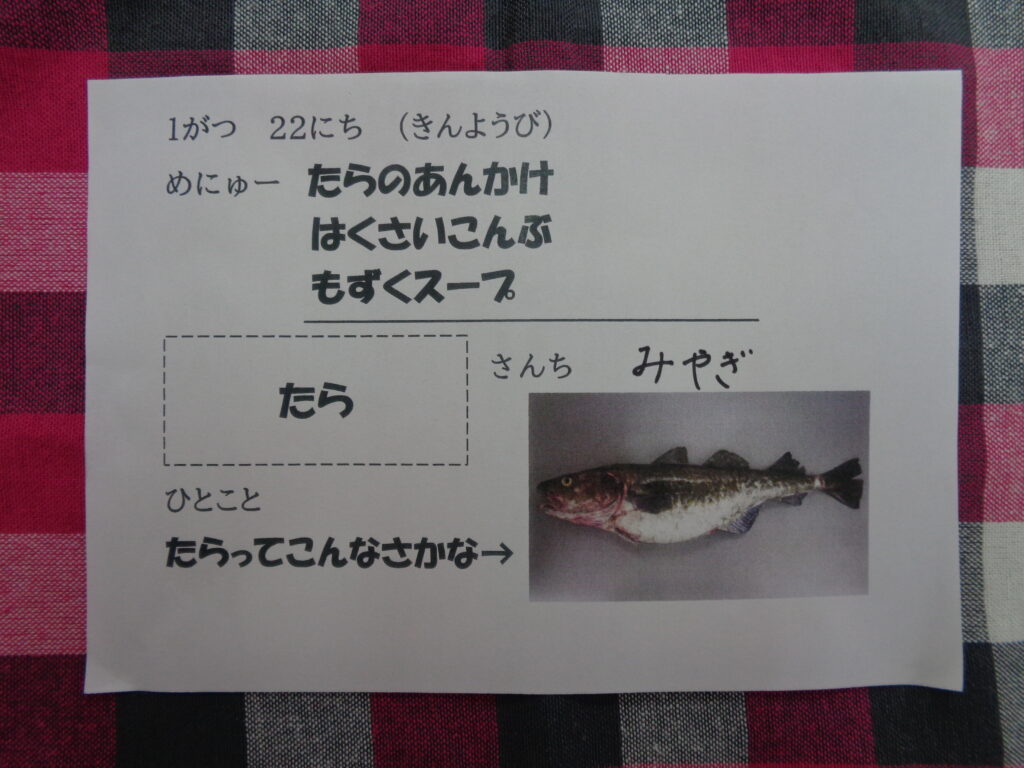 1がつ　22にち　（きんようび）
めにゅー　たらのあんかけ
はくさいこんぶ
もずくスープ
たら
さんち　みやぎ
ひとこと
たらってこんなさかな→